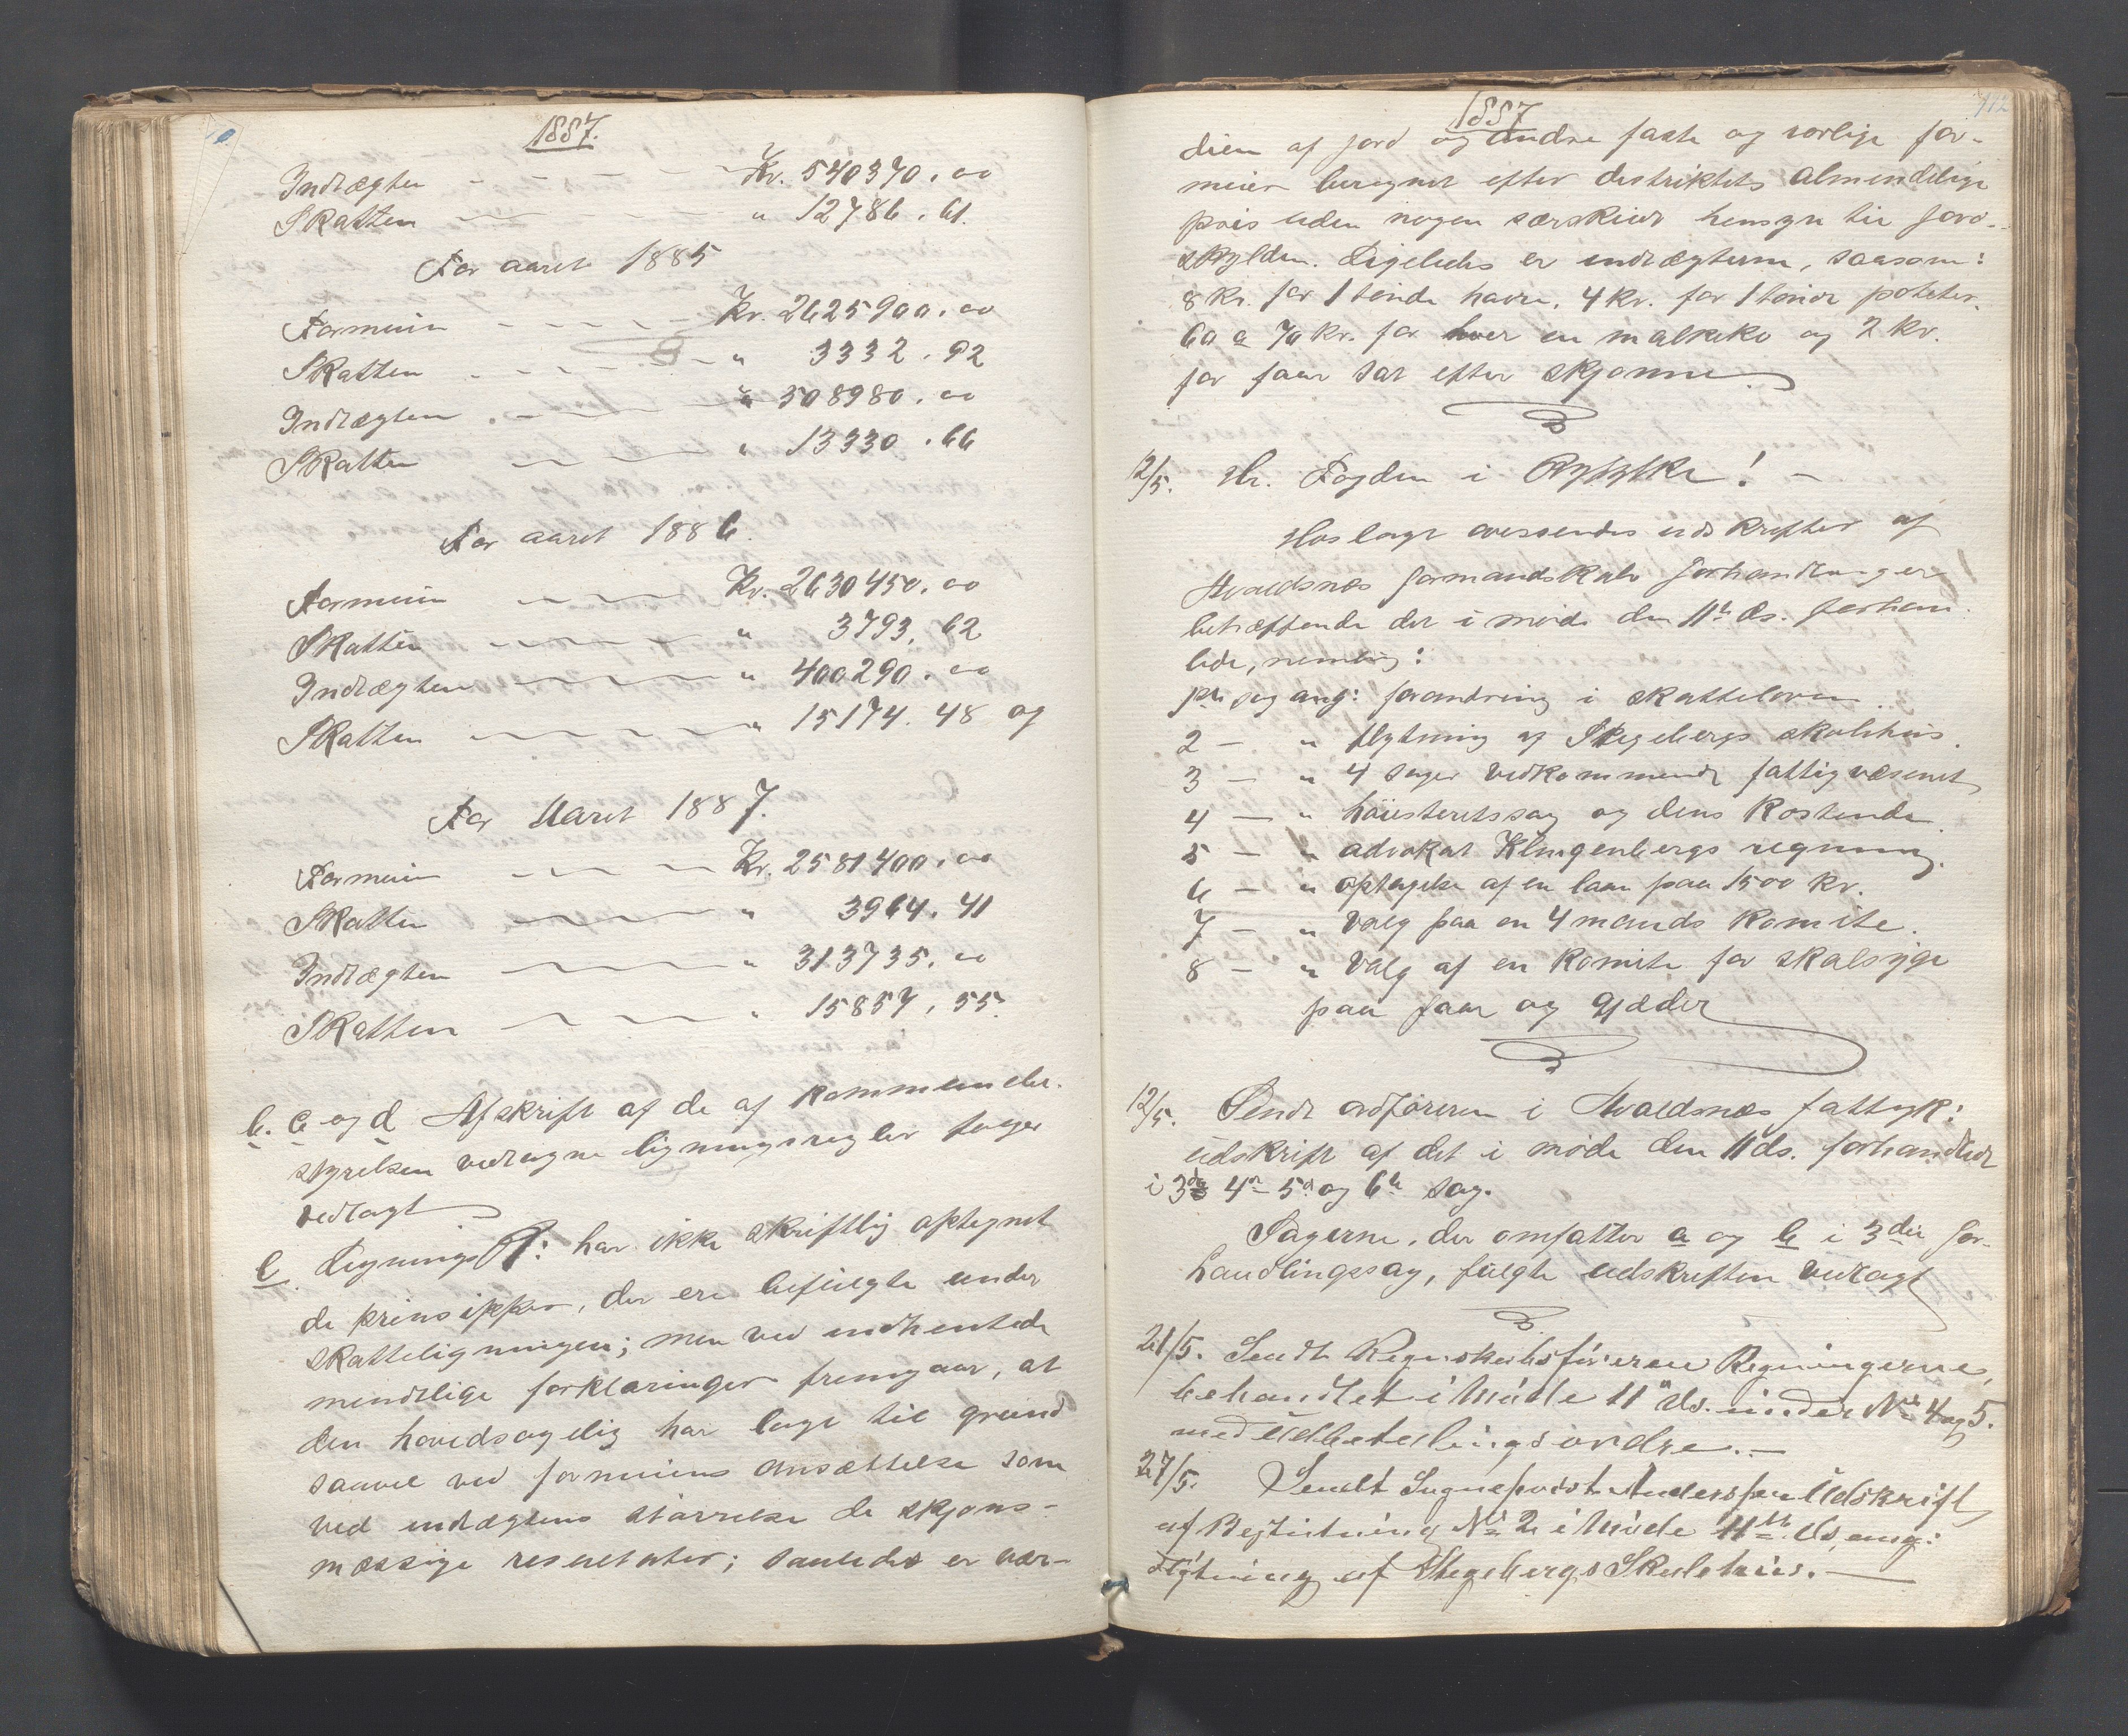 1887.
Indtægten Kr. 540370.00
Skatten " 12786.61.
For aaret 1885
Formuen Kr. 2625900.00
Skatten " 3332.92
Indtægten " 508980.00
Skatten " 13330.66
For aaret 1886.
Formuen Kr. 2630450.00
Skatten " 3793.62
Indtægten " 400290.00
Skatten " 15174.48 og
For Aaret 1887.
Formuen Kr. 2581400.00
Skatten " 3964.41
Indtægten " 313735.00
Skatten " 15857,55.
b. c og d Afskrift af de af kommune-
styrelsen vedtagne ligningsregler følger
vedlagt
e. Lignings: har ikke skriftlig optegnet
de prinsipper, der ere befulgte under
skatteligningen; men ved indhentede
mundtlige forklaringer fremgaar, at
den hovedsagelig har lagt til grund
saavel ved formuens ansættelse som
ved indtægtens størrelse de skjøns-
mæssige resultater; saaledes er vær-
112
1887
dien af jord og andre faste og rørlige for-
muer beregnet efter distriktets almindelige
pris uden nogen særskilt hensyn til jord-
skylden. Ligeledes er indtægterne, saasom:
8 Kr. for 1 tønde havre, 4 Kr. for 1 tønde poteter,
60 a 70 Kr. for hver en malkeko og 2 Kr.
for faar sat efter skjønne.
12/5. Hr. Fogden i Ryfylke! –
Hoslagt oversendes udskrifter af
Avaldsnæs formandskabs forhandlinger
betræffende det i møde den 11te ds. forhan-
lede, nemlig:
1ste sag ang: forandring i skatteloven
2 – " flytning af Stegebergs skolehus.
3 – " 4 sager vedkommende fattigvæsenet
4 – " høiesteretssag og dens Kostende.
5 – " advokat Klingenbergs regning.
6 – " optagelse af en laan paa 1500 kr.
7 – " Valg paa en 4 mands Komite.
8 – " Valg af en Komite for skalsyge
paa faar og gjæder
12/5. Sendt ordføreren i Avaldsnæs fattigk:
udskrift af det i møde den 11 ds. forhandlet
i 3de 4de 5te og 6te sag.
Sagerne, der omfatter a og b i 3die for-
handlingssag, fulgte udskriften vedlagt
21/5. Sendt Regnskabsføreren Regningerne,
behandlet i Møde 11te ds. under No 4 og 5.
med Udbetalingsordre. –
27/5. Sendt Sogneprest Anderssen Udskrift
af Beslutning No 2 i Møde 11te ds, ang:
Flytning af Stegebergs Skolehus. –